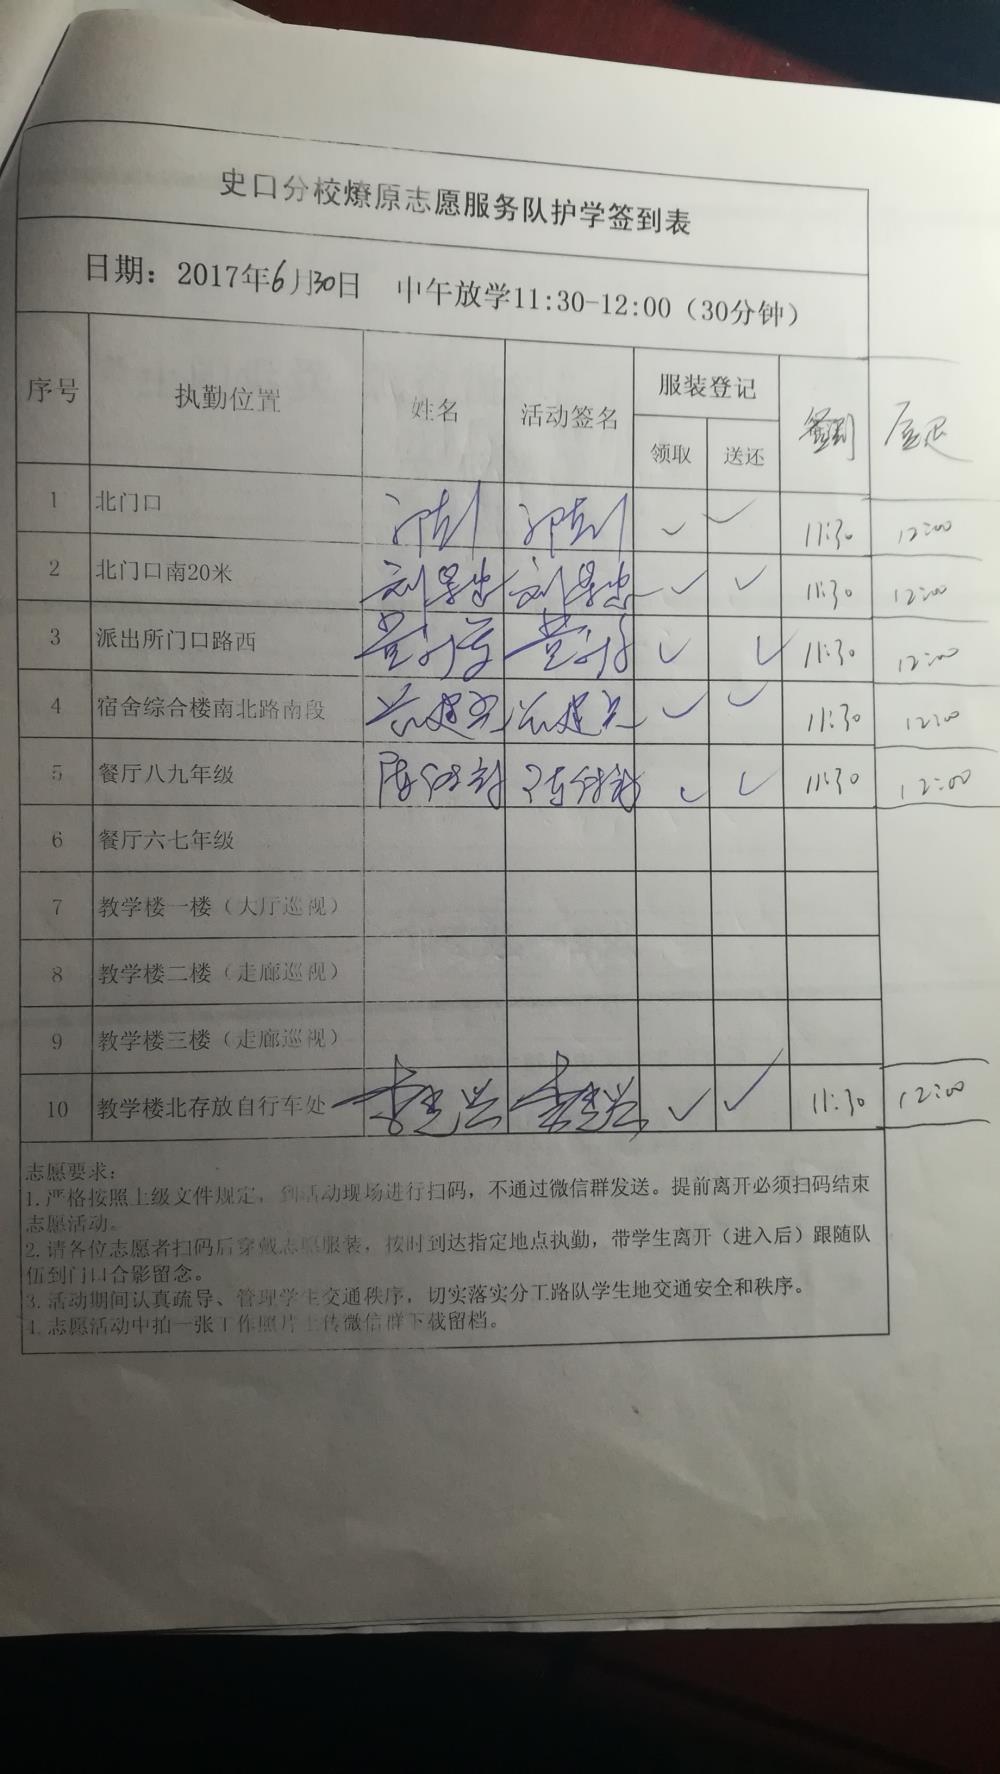 史口分校燎原志愿服务队护学签到表
日期：2017年6月30日 中午放学11:30-12:00（30分钟）
序号 执勤位置 姓名 活动签名 服装登记 签到
领取 送还
1 北门口 ✓ ✓ 11:30 12:00
2 北门口南20米 ✓ ✓ 11:30 12:00
3 派出所门口路西 ✓ ✓ 11:30 12:00
4 宿舍综合楼南北路南段 ✓ ✓ 11:30 12:00
5 餐厅八九年级 ✓ ✓ 11:30 12:00
6 餐厅六七年级
7 教学楼一楼（大厅巡视）
8 教学楼二楼（走廊巡视）
9 教学楼三楼（走廊巡视）
10 教学楼北存放自行车处 ✓ ✓ 11:30 12:00
志愿要求：
1.严格按照上级文件规定，到活动现场进行扫码，不通过微信群发送。提前离开必须扫码结束
志愿活动。
2.请各位志愿者扫码后穿戴志愿服装，按时到达指定地点执勤，带学生离开（进入后）跟随队
伍到门口合影留念。
3.活动期间认真疏导、管理学生交通秩序，切实落实分工路队学生地交通安全和秩序。
4.志愿活动中拍一张工作照片上传微信群下载留档。